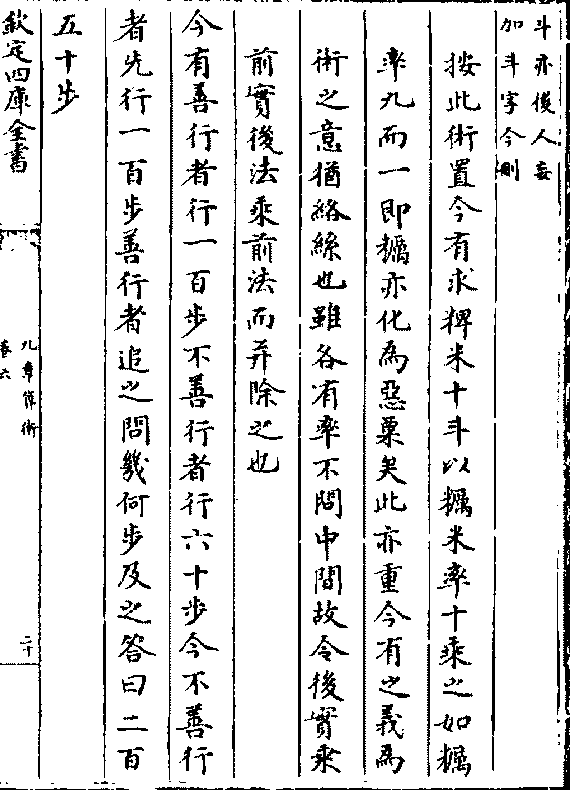 斗亦後人妄
加斗字今刪
按此術置今有求粺米十斗以糲米率十乘之如糲
率九而一即糲亦化為惡粟矣此亦重今有之義為
術之意猶絡絲也雖各有率不問中間故令後實乘
前實後法乘前法而并除之也
今有善行者行一百步不善行者行六十步今不善行
者先行一百步善行者追之問幾何步及之答曰二百
五十步
欽定四庫全書
九章算術
卷六
二十